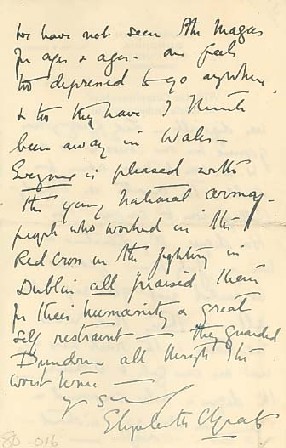 We have not seen the Magees
for ages & ages - one feels
too depressed to go anywhere
& too they have I think
been away in Wales -
Everyone is pleased with
the young National army -
people who worked in the
Red Cross in the fighting in
Dublin all praised them
for their humanity & great
self restraint - they guarded
Dundrum all through this
worst time -
Elizabeth
80-016